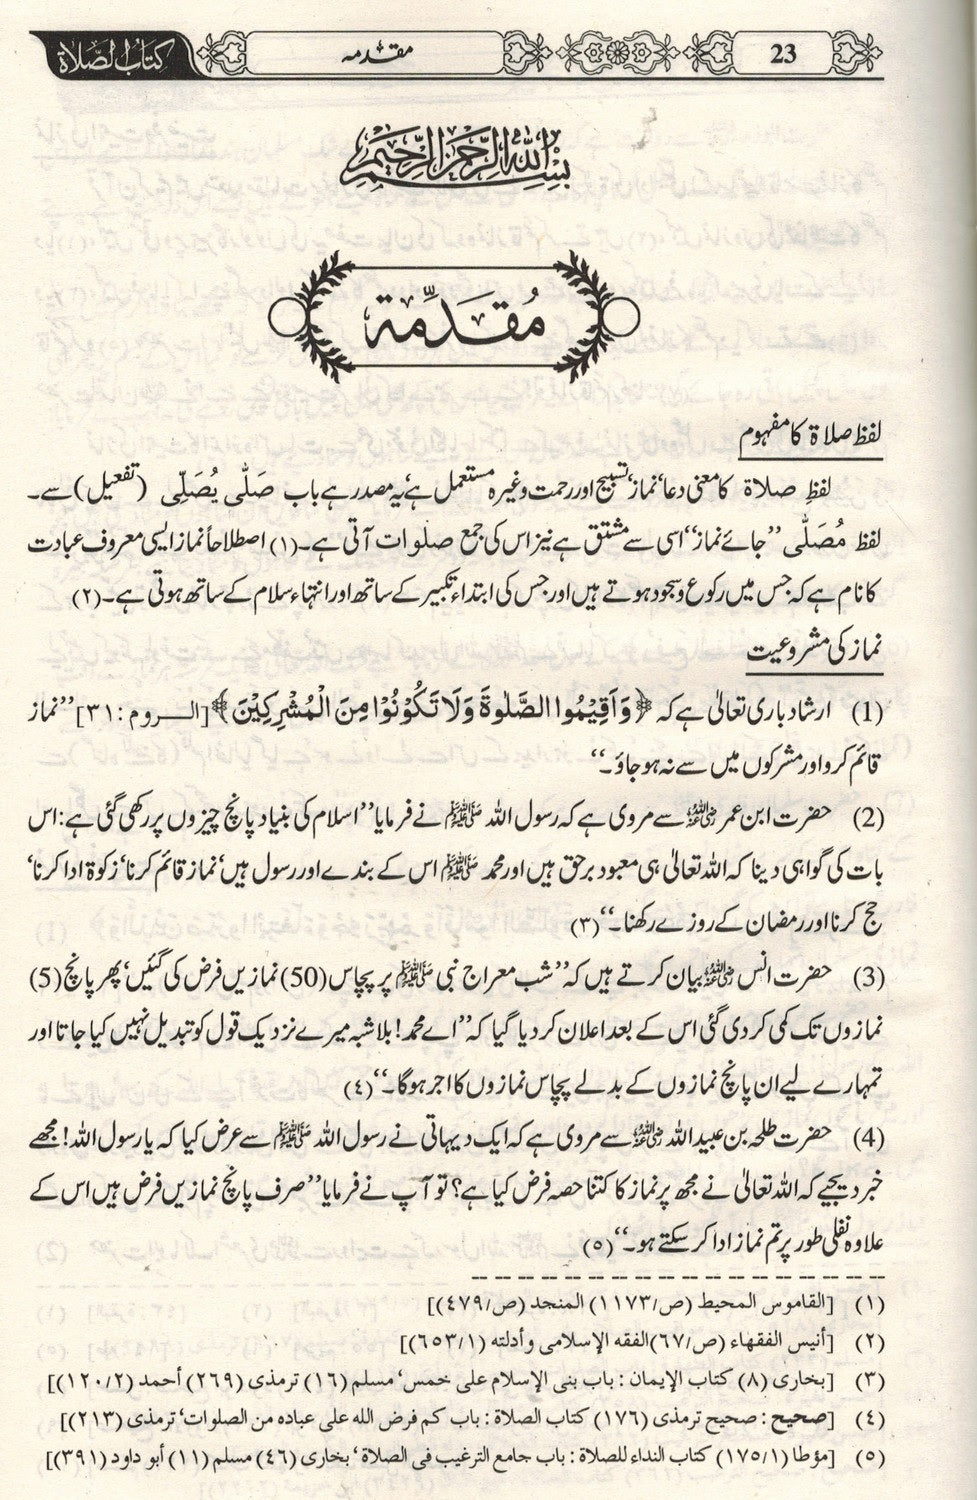 23
مقدمہ
کتاب الصلاۃ
بسم اللہ الرحمن الرحیم
مُقَدِّمَة
لفظ صلاۃ کا مفہوم
لفظِ صلاۃ کا معنی دعا‘ نماز‘ تسبیح اور رحمت وغیرہ مستعمل ہے‘ یہ مصدر ہے باب صَلّٰی یُصَلِّی (تفعیل) سے۔
لفظ مُصَلّٰی ’’جائے نماز‘‘ اسی سے مشتق ہے نیز اس کی جمع صلوات آتی ہے۔(۱) اصطلاحاً نماز ایسی معروف عبادت
کا نام ہے کہ جس میں رکوع و سجود ہوتے ہیں اور جس کی ابتداء تکبیر کے ساتھ اور انتہاء سلام کے ساتھ ہوتی ہے۔(۲)
نماز کی مشروعیت
(1) ارشاد باری تعالیٰ ہے کہ ﴿وَأَقِیْمُوا الصَّلٰوةَ وَلَا تَکُوْنُوْا مِنَ الْمُشْرِکِیْنَ﴾ [الروم:۳۱] ’’نماز
قائم کرو اور مشرکوں میں سے نہ ہو جاؤ۔‘‘
(2) حضرت ابن عمر رضی اللہ عنہ سے مروی ہے کہ رسول اللہ ﷺ نے فرمایا ’’اسلام کی بنیاد پانچ چیزوں پر رکھی گئی ہے: اس
بات کی گواہی دینا کہ اللہ تعالیٰ ہی معبود برحق ہیں اور محمد ﷺ اس کے بندے اور رسول ہیں‘ نماز قائم کرنا‘ زکوۃ ادا کرنا‘
حج کرنا اور رمضان کے روزے رکھنا۔‘‘(۳)
(3) حضرت انس رضی اللہ عنہ بیان کرتے ہیں کہ ’’شب معراج نبی ﷺ پر پچاس (50) نمازیں فرض کی گئیں‘ پھر پانچ (5)
نمازوں تک کمی کر دی گئی اس کے بعد اعلان کر دیا گیا کہ ’’اے محمد! بلاشبہ میرے نزدیک قول کو تبدیل نہیں کیا جاتا اور
تمہارے لیے ان پانچ نمازوں کے بدلے پچاس نمازوں کا اجر ہوگا۔‘‘(٤)
(4) حضرت طلحہ بن عبید اللہ رضی اللہ عنہ سے مروی ہے کہ ایک دیہاتی نے رسول اللہ ﷺ سے عرض کیا کہ یا رسول اللہ! مجھے
خبر دیجیے کہ اللہ تعالیٰ نے مجھ پر نماز کا کتنا حصہ فرض کیا ہے؟ تو آپ نے فرمایا ’’صرف پانچ نمازیں فرض ہیں اس کے
علاوہ نفلی طور پر تم نماز ادا کر سکتے ہو۔‘‘(٥)
(۱) [القاموس المحیط (ص/۱۱۷۳) المنجد (ص/٤۷۹)]
(۲) [أنیس الفقهاء (ص/٦۷) الفقه الإسلامی وأدلته (٦٥۳/۱)]
(۳) [بخاری (۸) کتاب الإیمان : باب بنی الإسلام علی خمس‘ مسلم (۱٦) ترمذی (۲٦۹) أحمد (۱۲۰/۲)]
(٤) [صحیح : صحیح ترمذی (۱۷٦) کتاب الصلاة : باب کم فرض الله علی عباده من الصلوات‘ ترمذی (۲۱۳)]
(٥) [مؤطا (۱۷٥/۱) کتاب النداء للصلاة : باب جامع الترغیب فی الصلاة ‘ بخاری (٤٦) مسلم (۱۱) أبو داود (۳۹۱)]